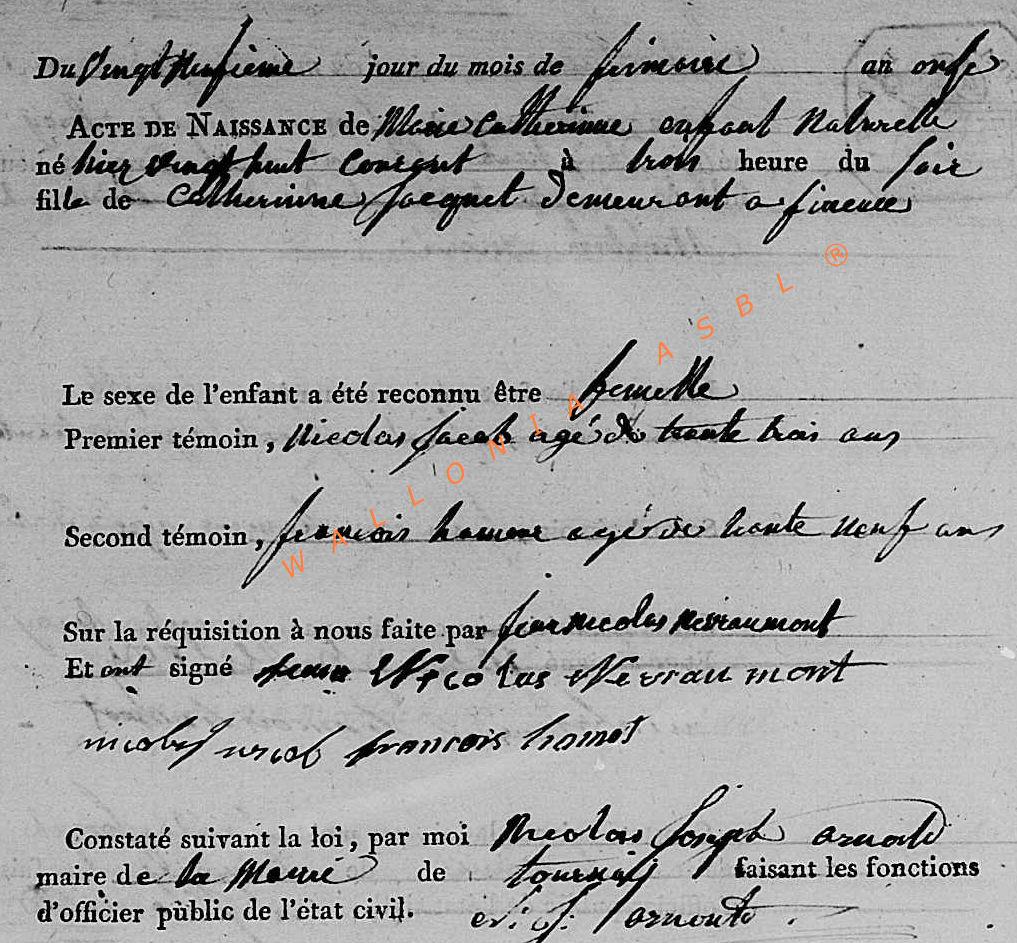 Du Vingt Neufieme jour du mois de frimaire an onse
ACTE DE NAISSANCE de Marie Catherinne enfant Naturelle
né hier vingt huit Courent à trois heure du soir
fille de Catherinne Jacquet demeurant a fineuse
WALLONIA ASBL ®
Le sexe de l'enfant a été reconnu être femelle
Premier témoin, Nicolas Jacob agé de trante trois ans
Second témoin, francois hamene agé de trante neuf ans
Sur la réquisition à nous faite par jean nicolas Nevraumont
Et ont signé jean Nicolas Nevraumont
nicolas jacob francois hamet
Constaté suivant la loi, par moi Nicolas Joseph arnould
maire de la Mairie de tournay faisant les fonctions
d'officier public de l'état civil. N. J. arnould